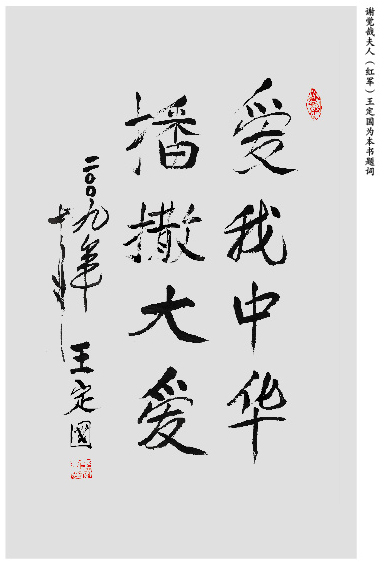 谢觉哉夫人（红军）王定国为本书题词
爱我中华
播撒大爱
二〇〇九年
王定国